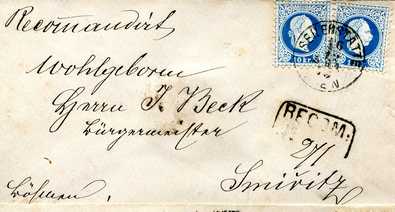 Recomandirt
Wohlgeborn
Herrn J. Beck
Bürgermeister
RECOM.
Smiřitz
Böhmen
10 kr.